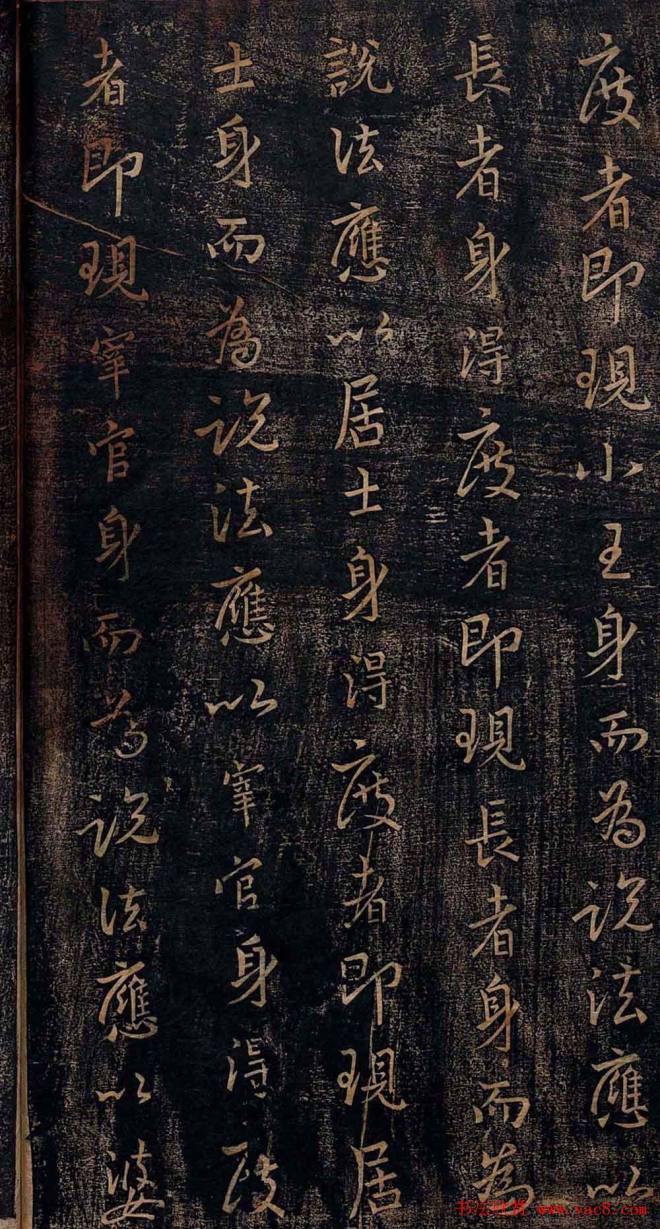 度者即現小王身而為説法應以
長者身得度者即現長者身而為
說法應以居士身得度者即現居
士身而為説法應以宰官身得度
者即現宰官身而為説法應以婆
书法欣赏 www.yac8.com